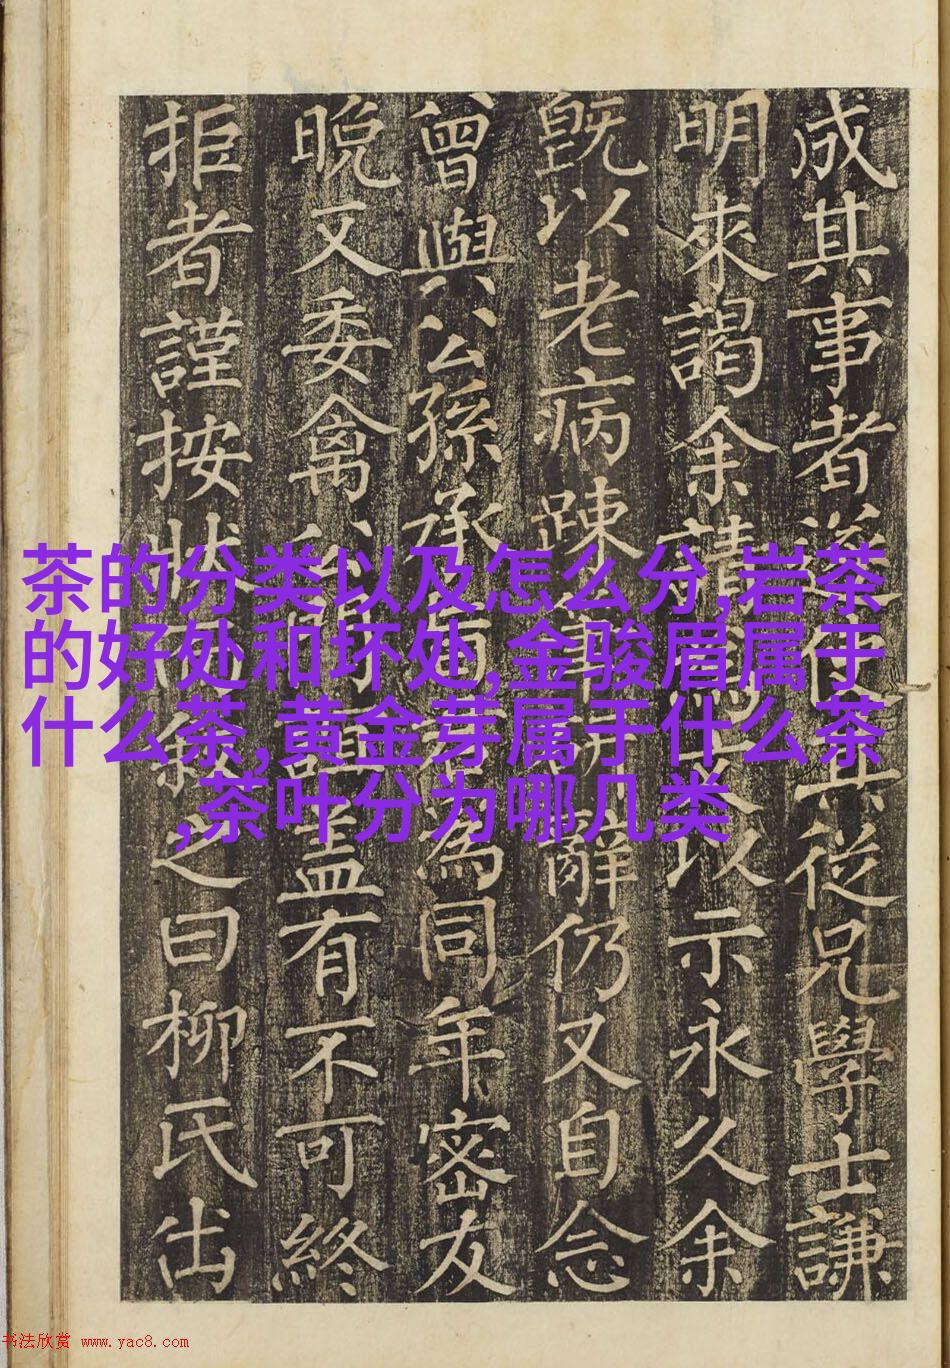 成其事者其從兄學士謙
明來謁余請以示永久余
旣以老病踈辭仍又自念
曾與公孫承爲同年密友
晩又委禽公盖有不可終
拒者謹按狀之曰柳氏出
茶的分类以及怎么分,岩茶
的好处和坏处,金骏眉属于
什么茶,黄金芽属于什么茶
,茶叶分为哪几类
书法欣赏 www.yac8.com